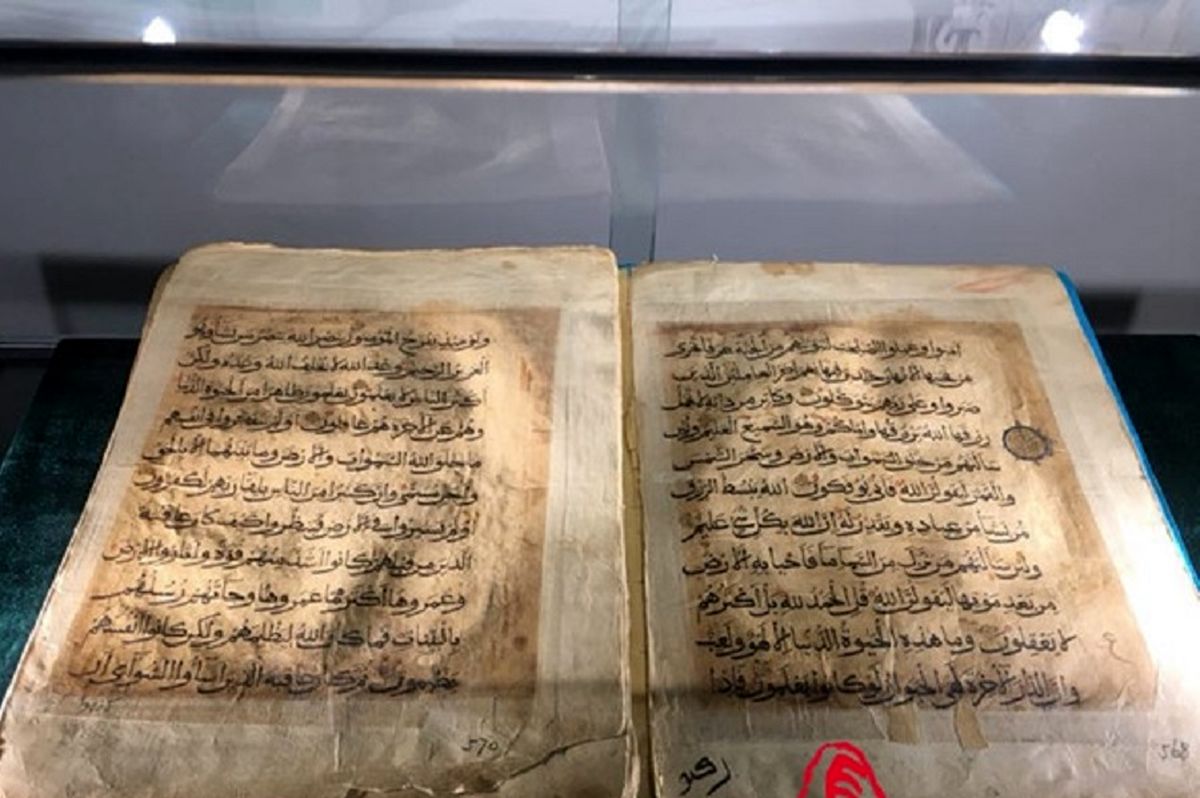 امنوا وعملوا الصلحت لنبوئنهم من الجنة غرفا تجري
من تحتها الانهار خالدين فيها نعم اجر العاملين الذين
صبروا وعلى ربهم يتوكلون وكاين من دابة لا تحمل
رزقها الله يرزقها واياكم وهو السميع العليم ولئن
سالتهم من خلق السموات والارض وسخر الشمس
والقمر ليقولن الله فانى يوفكون الله يبسط الرزق
لمن يشا من عباده ويقدر له ان الله بكل شي عليم
ولئن سالتهم من نزل من السما ما فاحيا به الارض
من بعد موتها ليقولن الله قل الحمد لله بل اكثرهم
لا يعقلون وما هذه الحيوة الدنيا الا لهو ولعب
وان الدار الاخرة لهي الحيوان لو كانوا يعلمون فاذا
568
ويومئذ يفرح المومنون بنصر الله ينصر من يشا وهو
العزيز الرحيم وعد الله لا يخلف الله وعده ولكن
اكثر الناس لا يعلمون يعلمون ظاهرا من الحيوة الدنيا
وهم عن الاخرة هم غافلون اولم يتفكروا في انفسهم
ما خلق الله السموات والارض وما بينهما الا بالحق
واجل مسمى وان كثيرا من الناس بلقا ربهم لكافرون
اولم يسيروا في الارض فينظروا كيف كان عاقبة
الذين من قبلهم كانوا اشد منهم قوة واثاروا الارض
وعمروها اكثر مما عمروها وجاتهم رسلهم
بالبينات فما كان الله ليظلمهم ولكن كانوا انفسهم
يظلمون ثم كان عاقبة الذين اساوا السواى ان
كذبوا
570